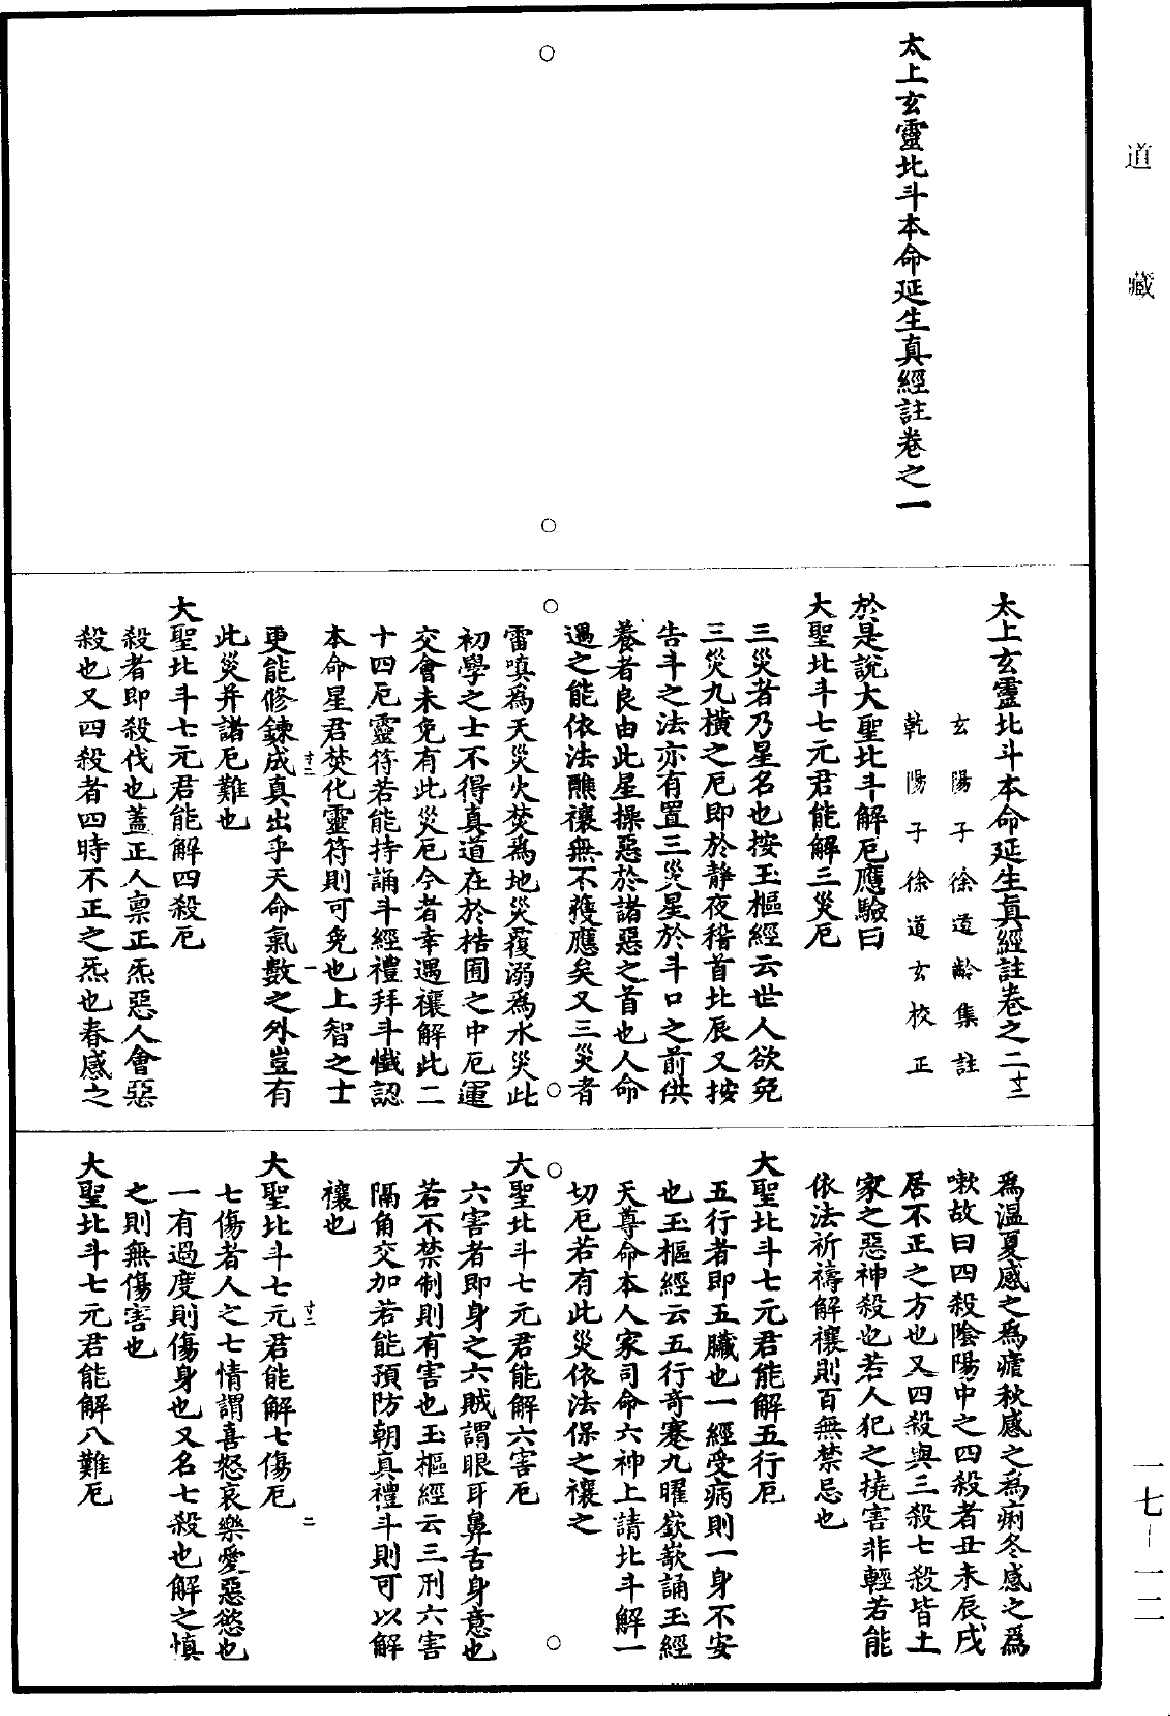 道藏
太上玄靈北斗本命延生真經註卷之一
太上玄靈北斗本命延生真經註卷之二 寸三
玄陽子徐道齡集註
乾陽子徐道玄校正
於是說大聖北斗解厄應驗曰
大聖北斗七元君能解三災厄
三災者乃星名也按玉樞經云世人欲免
三災九橫之厄即於靜夜稽首北辰又按
告斗之法亦有置三災星於斗口之前供
養者良由此星操惡於諸惡之首也人命
遇之能依法醮禳無不獲應矣又三災者
雷嗔為天災火焚為地災覆溺為水災此
初學之士不得真道在於梏囿之中厄運
交會未免有此災厄今者幸遇禳解此二
十四厄靈符若能持誦斗經禮拜斗懺認
本命星君焚化靈符則可免也上智之士
寸三 一
更能修鍊成真出乎天命氣數之外豈有
此災并諸厄難也
大聖北斗七元君能解四殺厄
殺者即殺伐也蓋正人稟正炁惡人會惡
殺也又四殺者四時不正之炁也春感之
為溫夏感之為瘧秋感之為痢冬感之為
嗽故曰四殺陰陽中之四殺者丑未辰戌
居不正之方也又四殺與三殺七殺皆土
家之惡神殺也若人犯之撓害非輕若能
依法祈禱解禳則百無禁忌也
大聖北斗七元君能解五行厄
五行者即五臟也一經受病則一身不安
也玉樞經云五行奇蹇九曜嶔㟢誦玉經
天尊命本人家司命六神上請北斗解一
切厄若有此災依法保之禳之
大聖北斗七元君能解六害厄
六害者即身之六賊謂眼耳鼻舌身意也
若不禁制則有害也玉樞經云三刑六害
隔角交加若能預防朝真禮斗則可以解
禳也
寸三 二
大聖北斗七元君能解七傷厄
七傷者人之七情謂喜怒哀樂愛惡慾也
一有過度則傷身也又名七殺也解之慎
之則無傷害也
大聖北斗七元君能解八難厄
一七-一二